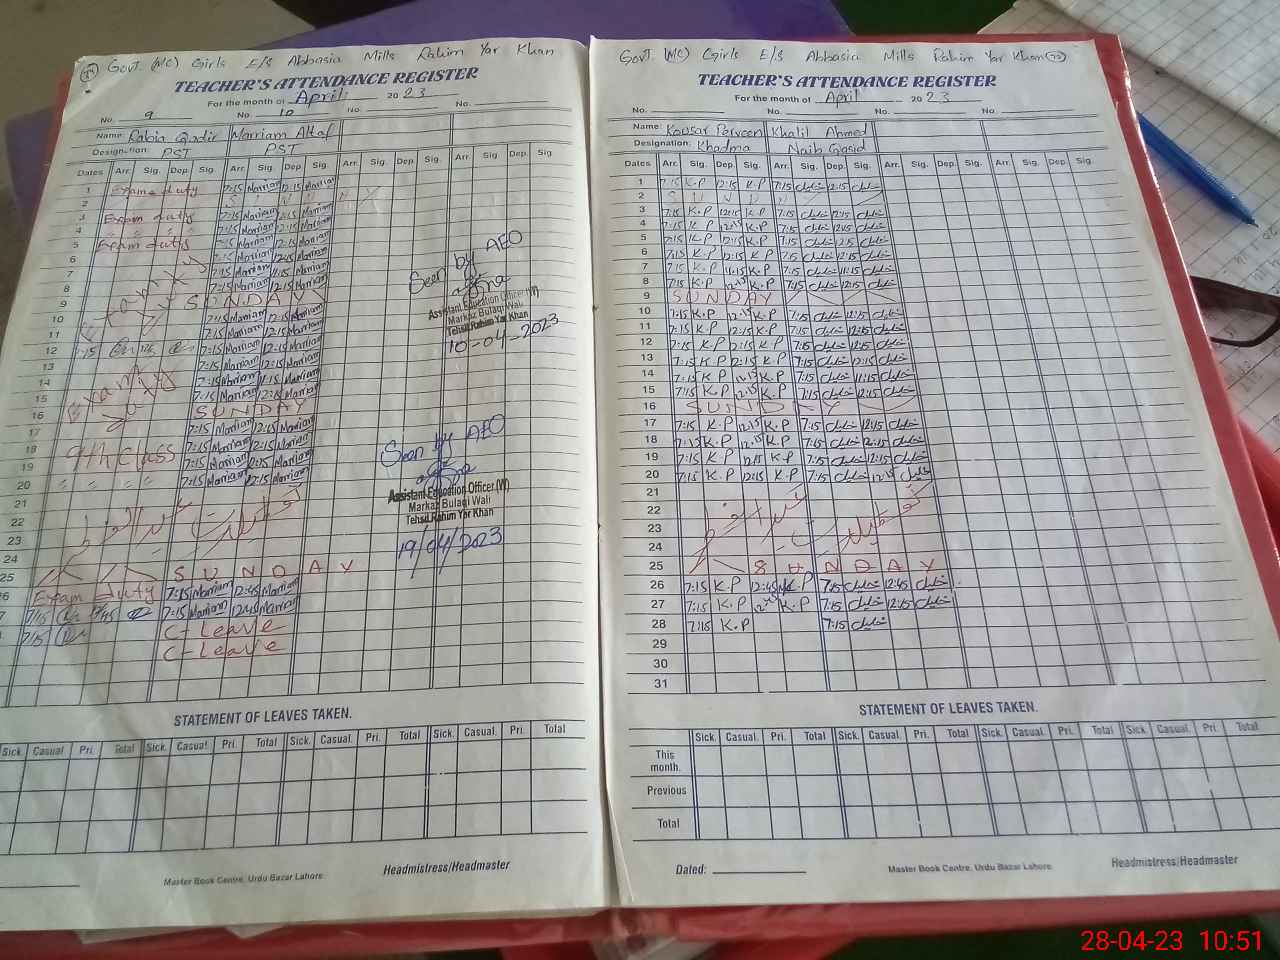 Govt. (MC) Girls E/S Abbasia Mills Rahim Yar Khan
TEACHER'S ATTENDANCE REGISTER
For the month of April 2023
No. 9 No. 10 No. No.
Name: Rabia Qadir Marriam Altaf
Designation: PST PST
Dates Arr. Sig. Dep. Sig. Arr. Sig. Dep. Sig. Arr. Sig. Dep. Sig. Arr. Sig. Dep. Sig.
1 Exame duty 7:15 Marriam 12:15 Marriam
2 S U N D A Y
3 Exam duty 7:15 Marriam 12:15 Marriam
4 " " " 7:15 Marriam 12:15 Marriam
5 Exam duty 7:15 Marriam 12:15 Marriam
6 7:15 Marriam 12:15 Marriam
7 7:15 Marriam 11:15 Marriam
8 7:15 Marriam 12:15 Marriam
9 SUNDAY
10 7:15 Marriam 12:15 Marriam
11 7:15 Marriam 12:15 Marriam
12 7:15 Marriam 12:15 Marriam
13 7:15 Marriam 12:15 Marriam
14 7:15 Marriam 11:15 Marriam
15 7:15 Marriam 12:15 Marriam
16 SUNDAY
17 7:15 Marriam 12:15 Marriam
18 9th Class 7:15 Marriam 12:15 Marriam
19 7:15 Marriam 12:15 Marriam
20 " " " 7:15 Marriam 12:15 Marriam
21
22
23
24
25 S U N D A Y
Exam duty 7:15 Marriam 12:45 Marriam
7/15 7:15 Marriam 12:45 Marriam
7/15 C-Leave
C-Leave
Seen by AEO
Assistant Education Officer (W)
Markaz Bulaqi Wali
Tehsil Rahim Yar Khan
10-04-2023
Seen by AEO
Assistant Education Officer (W)
Markaz Bulaqi Wali
Tehsil Rahim Yar Khan
19/04/2023
STATEMENT OF LEAVES TAKEN.
Sick. Casual. Pri. Total Sick. Casual. Pri. Total Sick. Casual. Pri. Total Sick. Casual. Pri. Total
Headmistress/Headmaster
Master Book Centre, Urdu Bazar Lahore.
Govt. (MC) Girls E/S Abbasia Mills Rahim Yar Khan
TEACHER'S ATTENDANCE REGISTER
For the month of April 2023
No. No. No. No.
Name: Kousar Perveen Khalil Ahmed
Designation: Khadma Naib Qasid
Dates Arr. Sig. Dep. Sig. Arr. Sig. Dep. Sig. Arr. Sig. Dep. Sig. Arr. Sig. Dep. Sig.
1 7:15 K.P 12:15 K.P 7:15 خلیل 12:15 خلیل
2 S U N D A Y
3 7:15 K.P 12:15 K.P 7:15 خلیل 12:15 خلیل
4 7:15 K.P 12:15 K.P 7:15 خلیل 12:15 خلیل
5 7:15 K.P 12:15 K.P 7:15 خلیل 12:15 خلیل
6 7:15 K.P 12:15 K.P 7:15 خلیل 12:15 خلیل
7 7:15 K.P 11:15 K.P 7:15 خلیل 11:15 خلیل
8 7:15 K.P 12:15 K.P 7:15 خلیل 12:15 خلیل
9 SUNDAY
10 7:15 K.P 12:15 K.P 7:15 خلیل 12:15 خلیل
11 7:15 K.P 12:15 K.P 7:15 خلیل 12:15 خلیل
12 7:15 K.P 12:15 K.P 7:15 خلیل 12:15 خلیل
13 7:15 K.P 12:15 K.P 7:15 خلیل 12:15 خلیل
14 7:15 K.P K.P 7:15 خلیل 11:15 خلیل
15 7:15 K.P 12:15 K.P 7:15 خلیل 12:15 خلیل
16 SUNDAY
17 7:15 K.P 12:15 K.P 7:15 خلیل 12:15 خلیل
18 7:15 K.P 12:15 K.P 7:15 خلیل 12:15 خلیل
19 7:15 K.P 12:15 K.P 7:15 خلیل 12:15 خلیل
20 7:15 K.P 12:15 K.P 7:15 خلیل 12:15 خلیل
21
22 تعطیلات عیدالفطر
23
24
25 S U N D A Y
26 7:15 K.P 12:45 K.P 7:15 خلیل 12:45 خلیل
27 7:15 K.P K.P 7:15 خلیل 12:45 خلیل
28 7:15 K.P 7:15 خلیل
29
30
31
STATEMENT OF LEAVES TAKEN.
Sick. Casual. Pri. Total Sick. Casual. Pri. Total Sick. Casual. Pri. Total Sick. Casual. Pri. Total
This month.
Previous
Total
Dated:
Master Book Centre, Urdu Bazar Lahore.
Headmistress/Headmaster
28-04-23 10:51